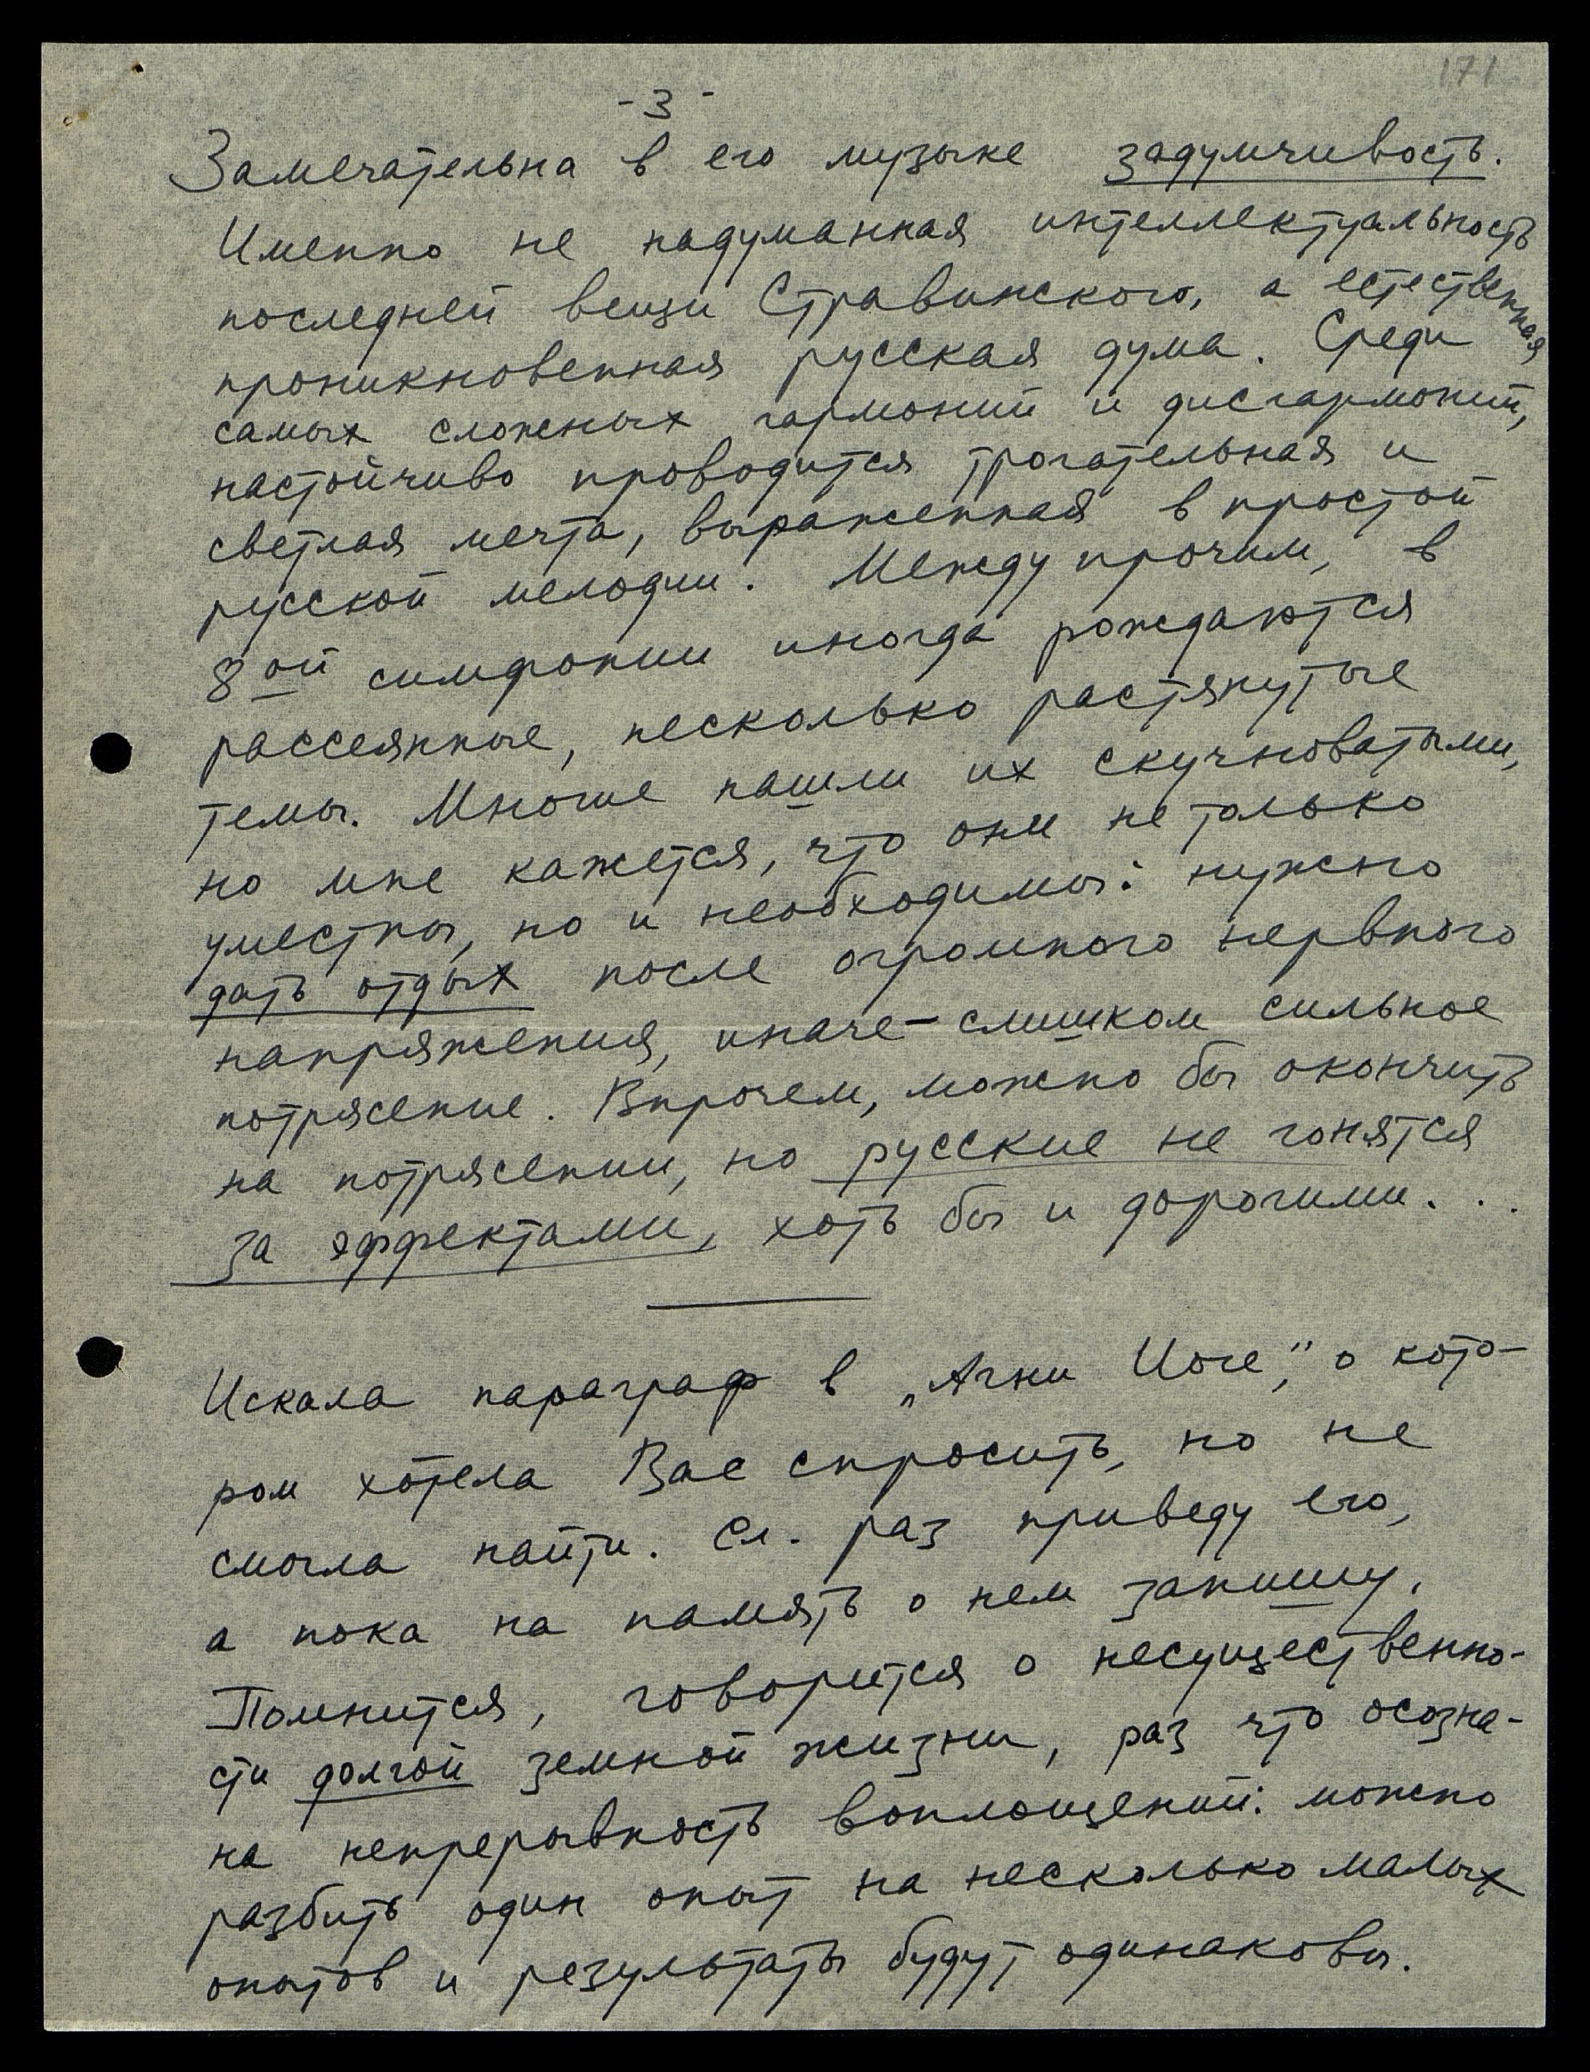 171
- 3 -
Замечательна в его музыке задумчивость.
Именно не надуманная интеллектуальность
последней вещи Стравинского, а естественная
проникновенная русская дума. Среди
самых сложных гармоний и дисгармоний,
настойчиво проводится трогательная и
светлая мечта, выраженная в простой
русской мелодии. Между прочим, в
8ой симфонии иногда рождаются
рассеянные, несколько растянутые
темы. Многие нашли их скучноватыми,
но мне кажется, что они не только
уместны, но и необходимы: нужно
дать отдых после огромного нервного
напряжения, иначе – слишком сильное
потрясение. Впрочем, можно бы окончить
на потрясении, но русские не гонятся
за эффектами, хоть бы и дорогими. . .
Искала параграф в „Агни Йоге,” о кото-
ром хотела Вас спросить, но не
смогла найти. Сл. раз приведу его,
а пока на память о нем запишу.
Помнится, говорится о несущественно-
сти долгой земной жизни, раз что осозна-
на непрерывность воплощений: можно
разбить один опыт на несколько малых
опытов и результаты будут одинаковы.